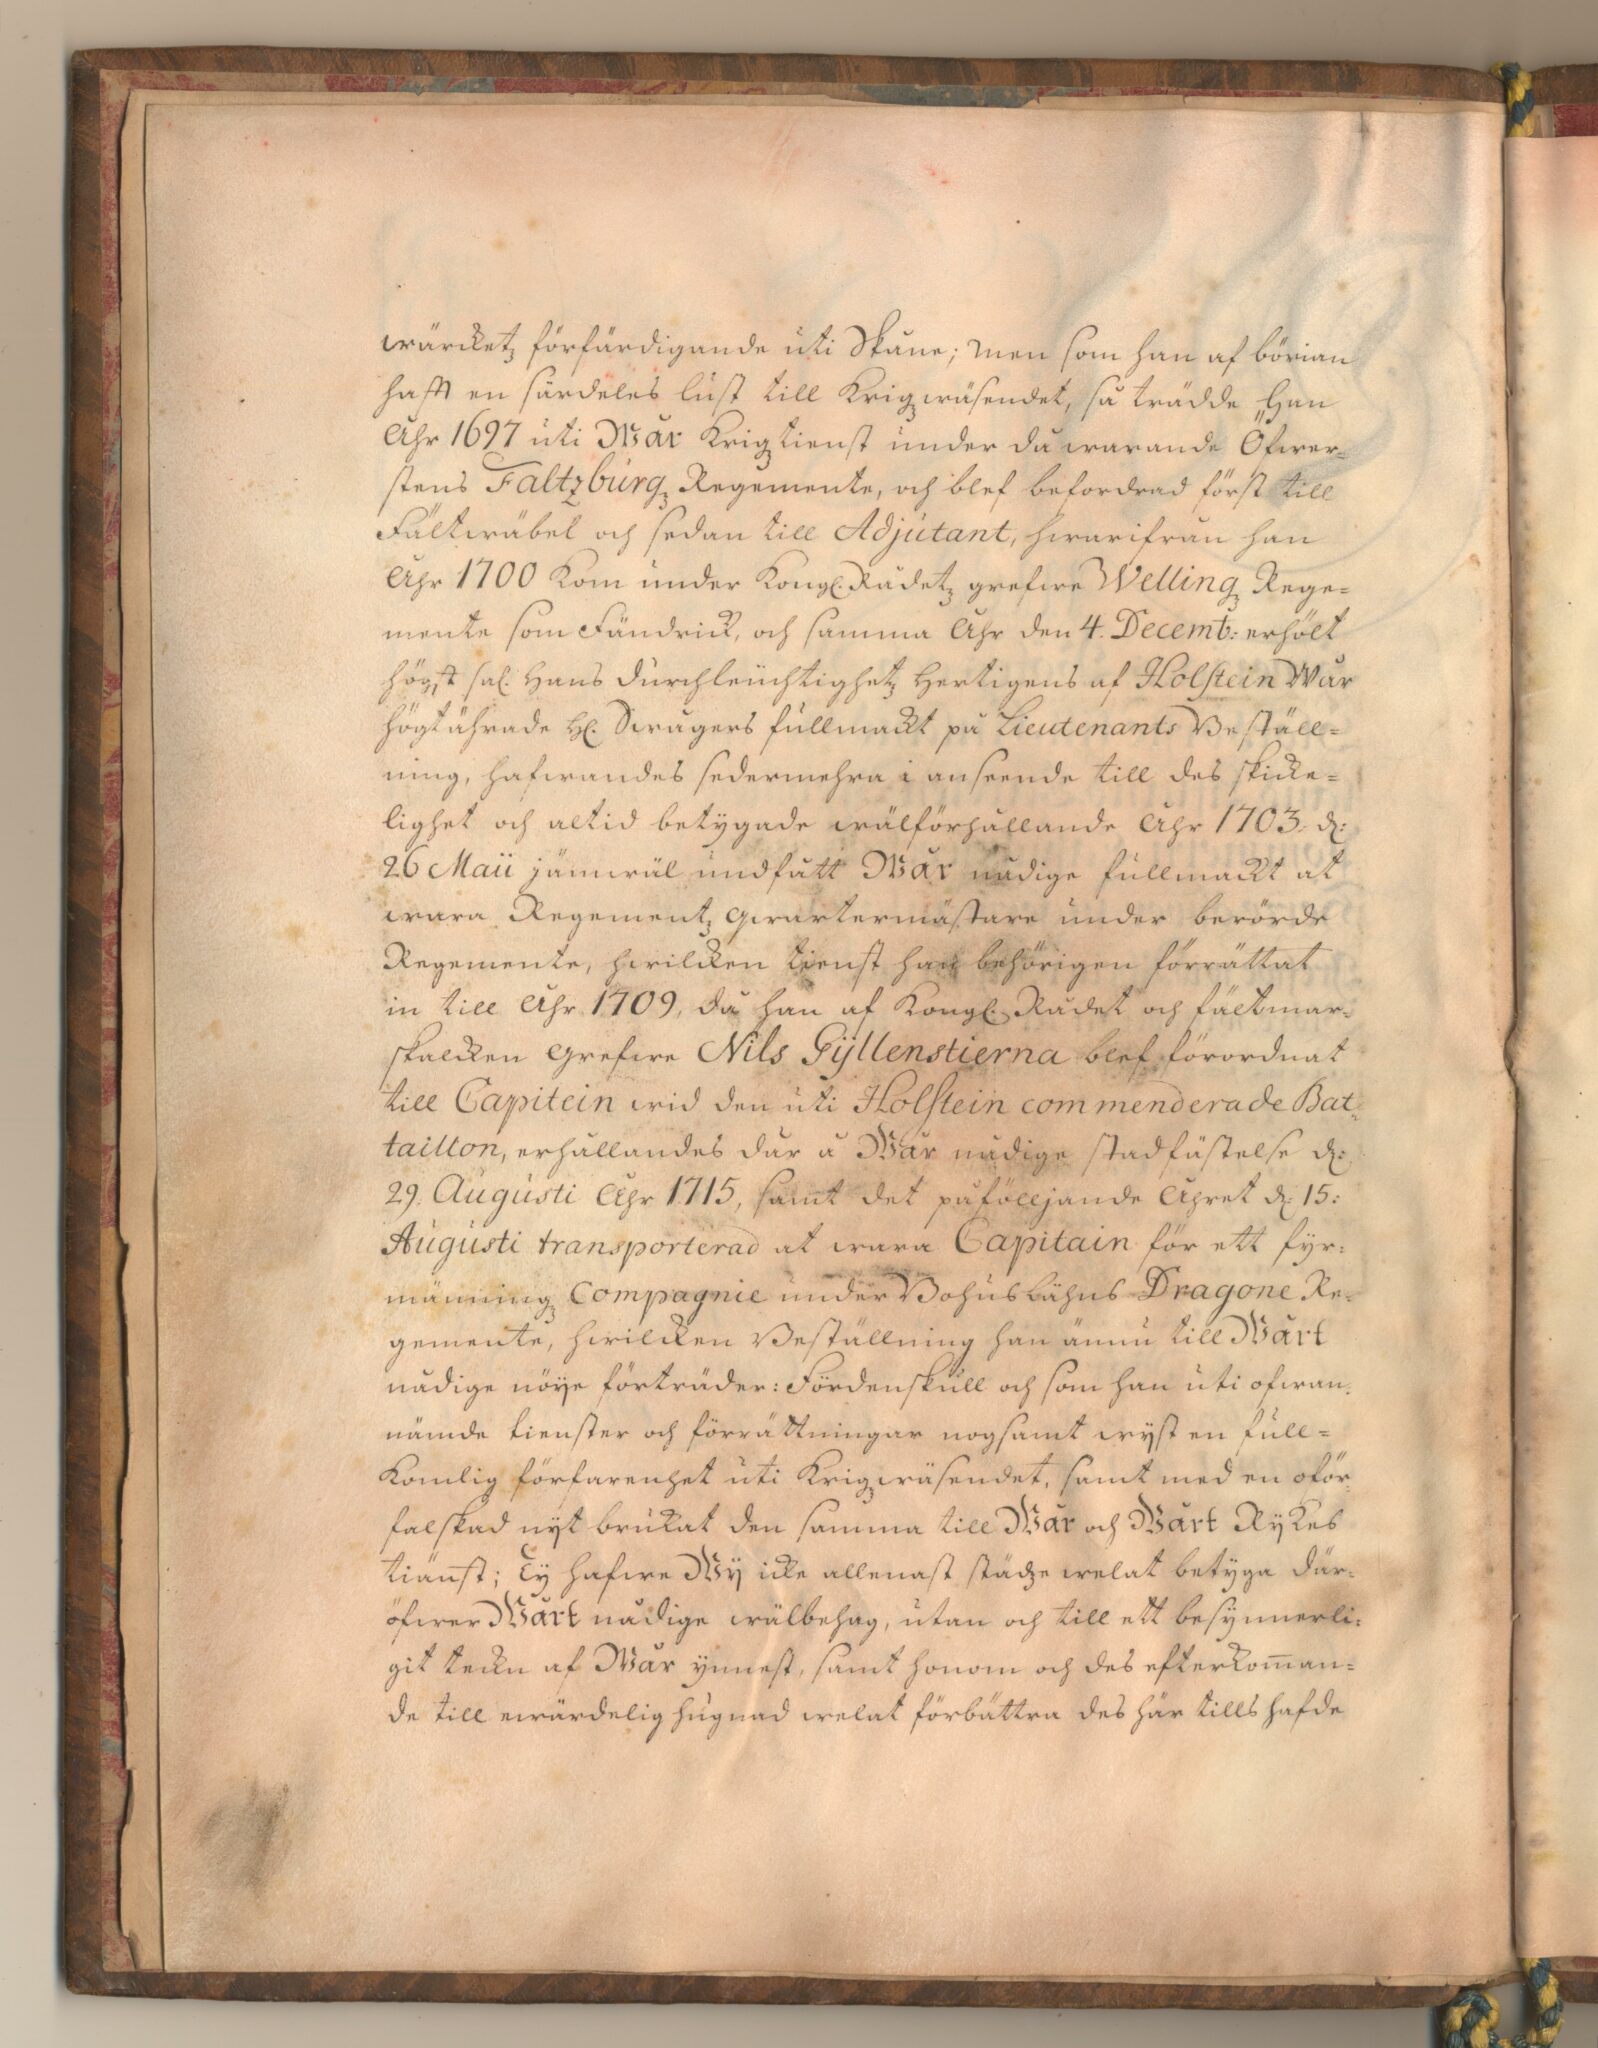 wärcketz förfärdigande uti Skåne; Men som han af börian
hafft en särdeles lust till Krigzwäsendet, så trädde Han
Åhr 1697 uti Wår Krigztienst under då warande Öfwer-
stens Faltzburgz Regemente, och blef befordrad först till
Fältwäbel och sedan till Adjutant, hwarifrån han
Åhr 1700 kom under Kongl. Rådetz grefwe Wellingz Rege=
mente som Fändrick, och samma Åhr den 4. Decemb: erhölt
högst sal. Hans Durchleuchtighetz Hertigens af Holstein Wår
högtährade H. Swågers fullmackt på Lieutenants Beställ=
ning, hafwandes sedermehra i anseende till des skicke=
lighet och altid betygade wälförhållande Åhr 1703. d:
26 Maii jämwäl undfått Wår nådige fullmackt at
wara Regementz Qwartermästare under berörde
Regemente, hwilcken tienst han behörigen förrättat
in till Åhr 1709, då han af Kongl. Rådet och fältmar-
skalcken Grefwe Nils Gyllenstierna blef förordnat
till Capitein wid den uti Holstein commenderade Bat-
taillon, erhållandes där å Wår nådige stadfästelse d:
29. Augusti Åhr 1715, samt det påfölljande Åhret d: 15:
Augusti transporterad at wara Capitain för ett fyr-
männingz Compagnie under Bohuslähns Dragone Re-
gemente, hwilcken Beställning han ännu till Wårt
nådige nöye förträder: Fördenskull och som han uti ofwan-
nämde tienster och förrättningar nogsamt wyst en full=
komlig förfarenhet uti Krigzwäsendet, samt med en oför-
falskad nyt brukat den samma till Wår och Wårt Rykes
tiänst; Ty hafwe Wy icke allenast städze welat betyga där-
öfwer Wårt nådige wälbehag, utan och till ett besynnerli-
git teckn af Wår ynnest, samt honom och des efterkomman=
de till ewärdelig hugnad welat förbättra des här tills hafde